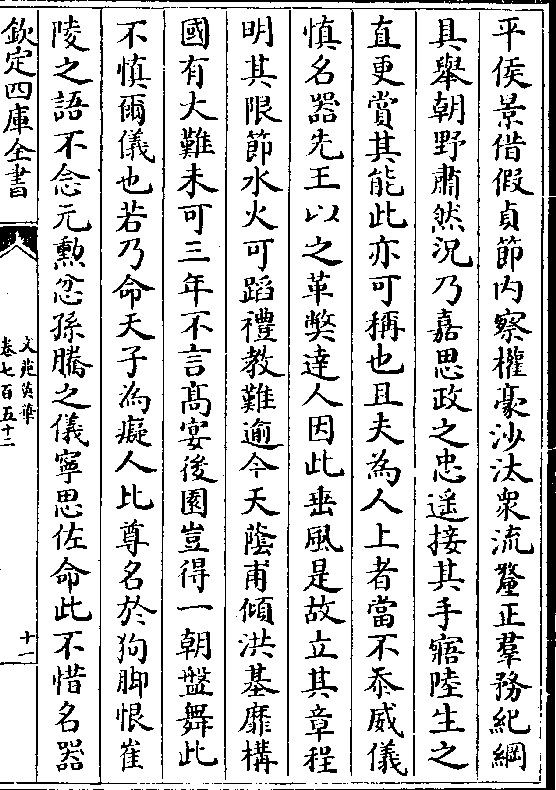 平侯景借假貞節内察權豪沙汰衆流釐正羣務紀綱
具舉朝野肅然況乃嘉思政之忠遥接其手寤陸生之
直更賞其能此亦可稱也且夫為人上者當不忝威儀
慎名器先王以之革弊達人因此垂風是故立其章程
明其限節水火可蹈禮教難逾今天蔭甫傾洪基靡構
國有大難未可三年不言髙宴後園豈得一朝盤舞此
不慎爾儀也若乃命天子為癡人比尊名於狗脚恨崔
陵之語不念元勲忿孫騰之儀寧思佐命此不惜名器
欽定四庫全書
文苑英華
卷七百五十二
十一